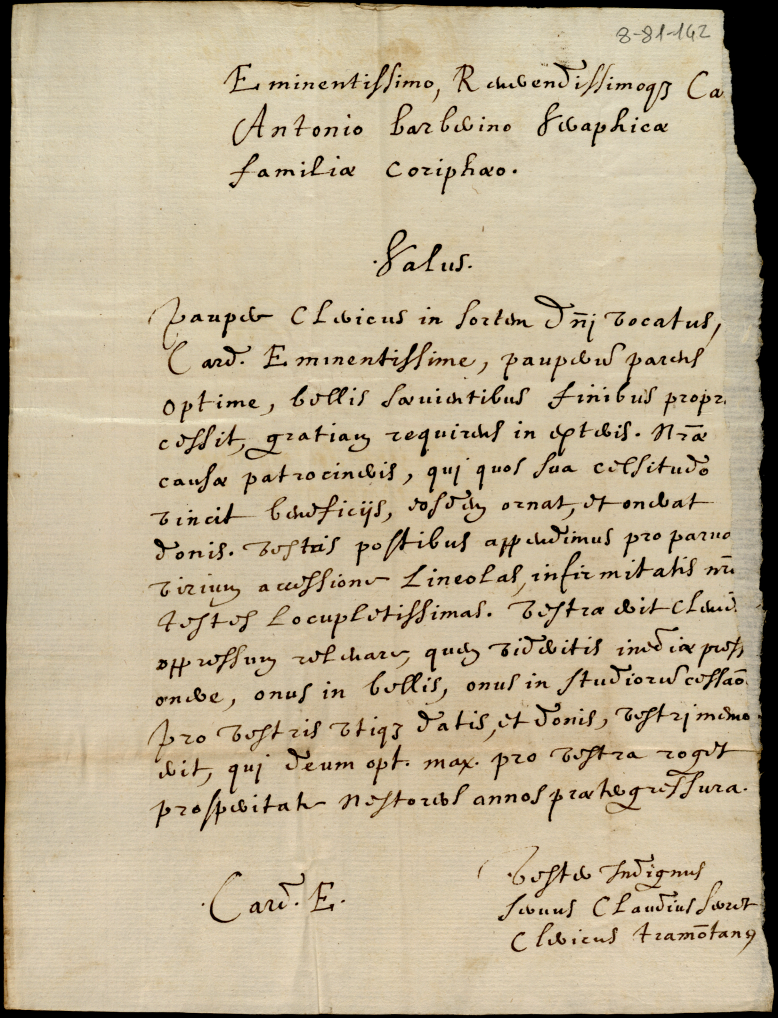 8-81-142
Eminentissimo, Reverendissimoq3 Ca
Antonio barberino Seraphicæ
familiæ coriphæo.
Salus.
Pauper Clericus in sortem Dn̄j vocatus,
Card. Eminentissime, pauperū parens
optime, bellis sæuientibus finibus propr
cessit, gratiam requirens in exteris. Nr̄æ
causæ patrocineris, quj quos sua celsitudo
vincit beneficijs, eosdem ornat, et onerat
donis. vestris postibus appendimus pro paruo
virium accessione Lineolas, infirmitatis nr̄
testes Locupletissimas. Vestra erit Cleri
oppressum releuare, quem videritis inediæ press
onere, onus in bellis, onus in studiorū cessāō
pro vestris vtiq3 datis, et donis, vestrj memo
erit, quj deum opt. max. pro vestra roget
prosperitate Nestoreos annos prætergressura.
Card. E.
Vester Indignus
seruus Claudius
Clericus tramōtanꝰ